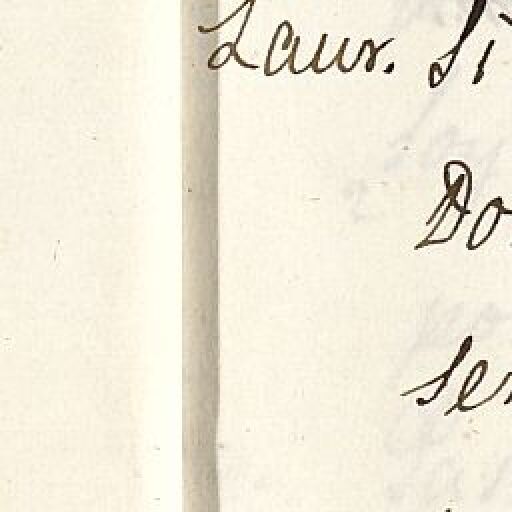 Laur. Si
Do
Ser